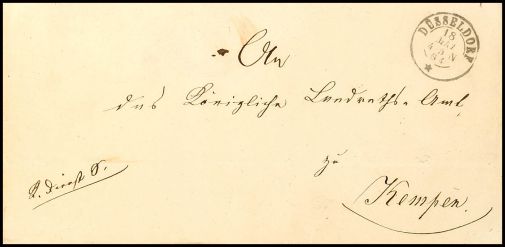 DÜSSELDORF
18
4-5 N
An
das Königliche Landraths-Amt
zu
Kempen.
K. Dienst S.